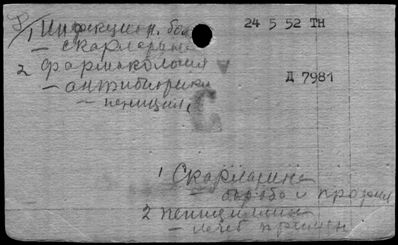 1 Инфекцион. бол
24 5 52 ТН
– скарлатина
2 Фармакология
Д 7981
– антибиотики
– пеницил.
С
1 Скарлатина
– борьба и профил
2 пенициллин
– лечеб примен